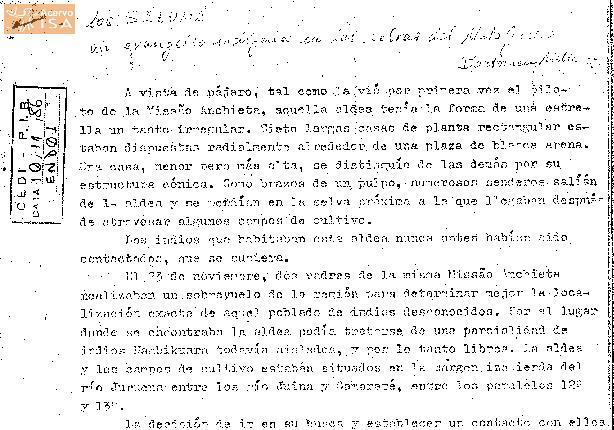 Acervo
ISA
Los SALUMÁ
un evangelio indígena en las selvas del Mato Grosso
Bartomeu Melià
CEDI - P.I.B.
DATA 10/11/86
END01
A vista de pájaro, tal como la vió por primera vez el pilo-
to de la Missão Anchieta, aquella aldea tenía la forma de una estre-
lla un tanto irregular. Siete largas casas de planta rectangular es-
taban dispuestas radialmente alrededor de una plaza de blanca arena.
Otra casa, menor pero más alta, se distinguía de las demás por su
estructura cónica. Como brazos de un pulpo, numerosos senderos salían
de la aldea y se metían en la selva próxima a la que llegaban después
de atravesar algunos campos de cultivo.
Los indios que habitaban esta aldea nunca antes habían sido
contactados, que se supiera.
El 23 de noviembre, dos padres de la misma Missão Anchieta
realizaban un sobrevuelo de la región para determinar mejor la loca-
lización exacta de aquel poblado de indios desconocidos. Por el lugar
donde se encontraba la aldea podía tratarse de una parcialidad de
indios Nambikuara todavía aislados, y por lo tanto libres. La aldea
y los campos de cultivo estaban situados en la márgen izquierda del
río Juruena entre los río Juina y Camararé, entre los paralelos 12º
y 13º.
La decisión de ir en su busca y establecer un contacto con ellos